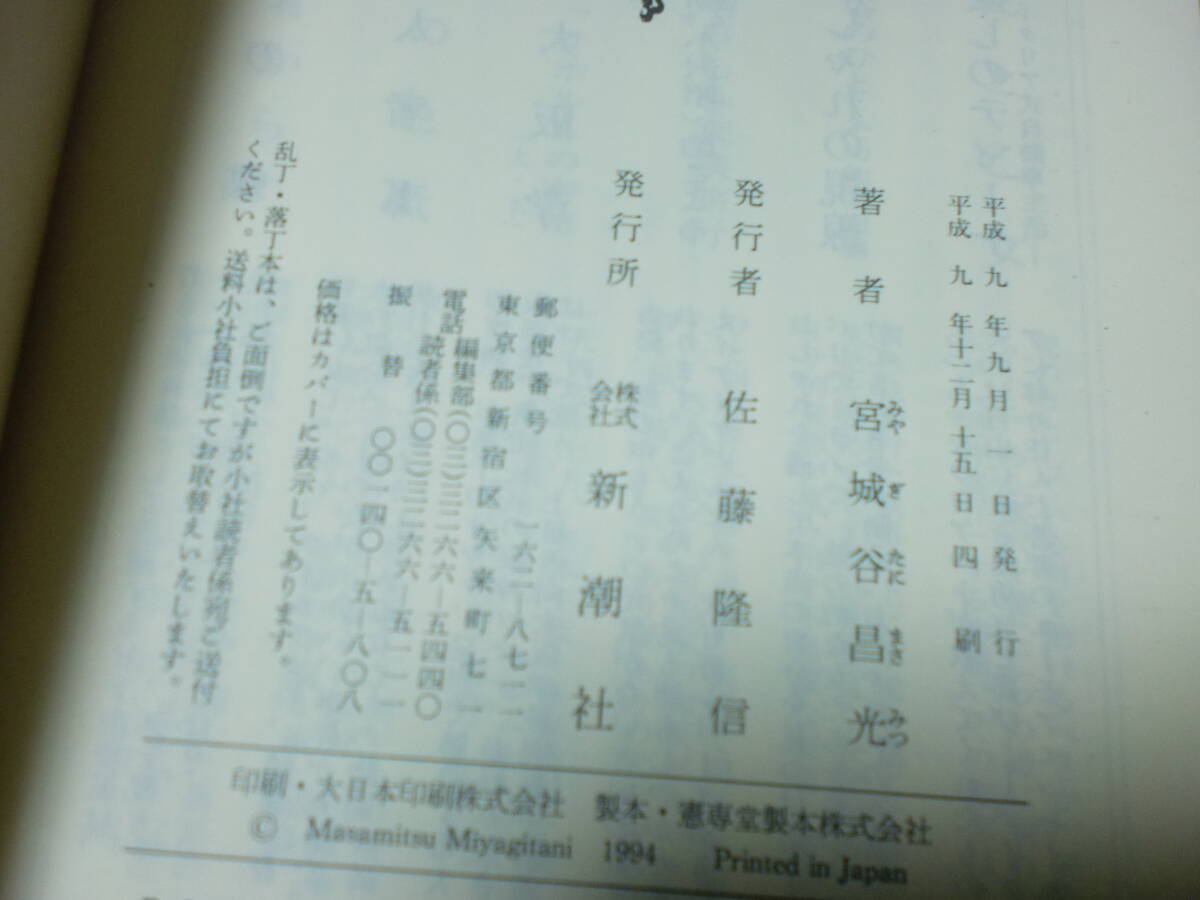 平成九年九月一日発行
平成九年十二月十五日四刷
著者 宮城谷昌光
みや ぎ たに まさ みつ
発行者 佐藤隆信
発行所 株式会社 新潮社
郵便番号 一六二―八七一一
東京都新宿区矢来町七一
電話 編集部(〇三)三二六六―五四四〇
読者係(〇三)三二六六―五一一一
振替 〇〇一四〇―五―八〇八
価格はカバーに表示してあります。
乱丁・落丁本は、ご面倒ですが小社読者係宛ご送付
ください。送料小社負担にてお取替えいたします。
印刷・大日本印刷株式会社 製本・憲専堂製本株式会社
© Masamitsu Miyagitani 1994 Printed in Japan